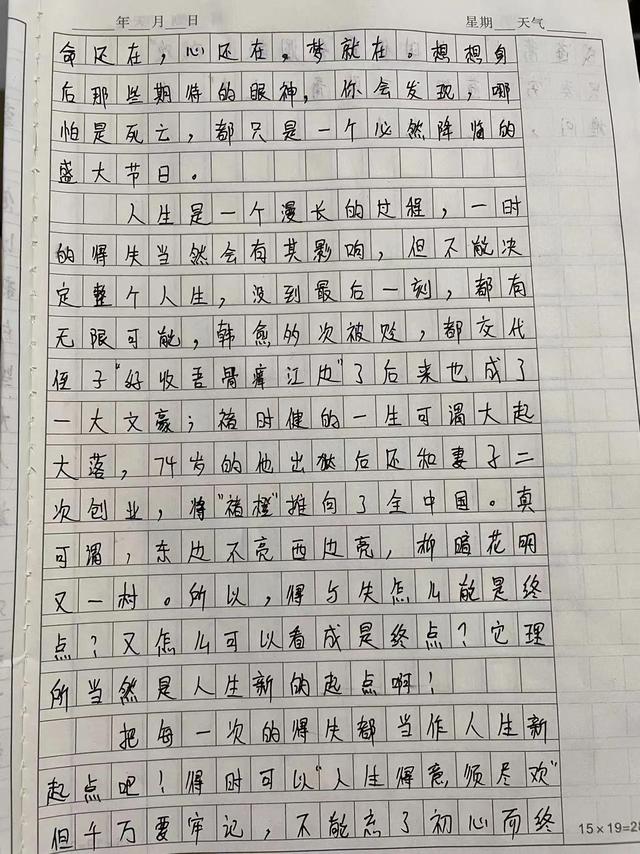 年 月 日 星期 天气
命还在，心还在，梦就在。想想身
后那些期待的眼神，你会发现，哪
怕是死亡，都只是一个必然降临的
盛大节日。
人生是一个漫长的过程，一时
的得失当然会有其影响，但不能决
定整个人生，没到最后一刻，都有
无限可能，韩愈的次被贬，都交代
侄子"好收吾骨瘴江边"了后来也成了
一大文豪；褚时健的一生可谓大起
大落，74岁的他出狱后还和妻子二
次创业，将"褚橙"推向了全中国。真
可谓，东边不亮西边亮，柳暗花明
又一村。所以，得与失怎么能是终
点？又怎么可以看成是终点？它理
所当然是人生新的起点啊！
把每一次的得失都当作人生新
起点吧！得时可以"人生得意须尽欢"
但千万要牢记，不能忘了初心而终
15×19=28